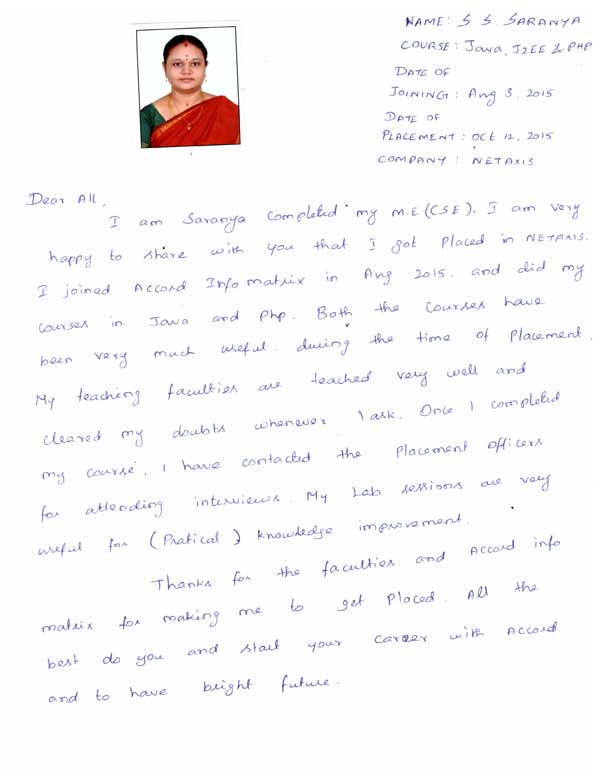 NAME: S S. SARANYA
COURSE: Java, J2EE & PHP
DATE OF
JOINING: Aug 3, 2015
DATE OF
PLACEMENT: OCT 12, 2015
COMPANY: NETAXIS
Dear All,
I am Saranya completed my M.E (CSE). I am very
happy to share with you that I got placed in NETAXIS.
I joined Accord Info matrix in Aug 2015. and did my
courses in Java and php. Both the courses have
been very much useful. during the time of Placement.
My teaching faculties are teached very well and
cleared my doubts whenever I ask. Once I completed
my course, I have contacted the Placement Officers
for attending interviews. My Lab sessions are very
useful for (Pratical) knowledge improvement.
Thanks for the faculties and Accord info
matrix for making me to get Placed. All the
best do you and start your career with Accord
and to have bright future.